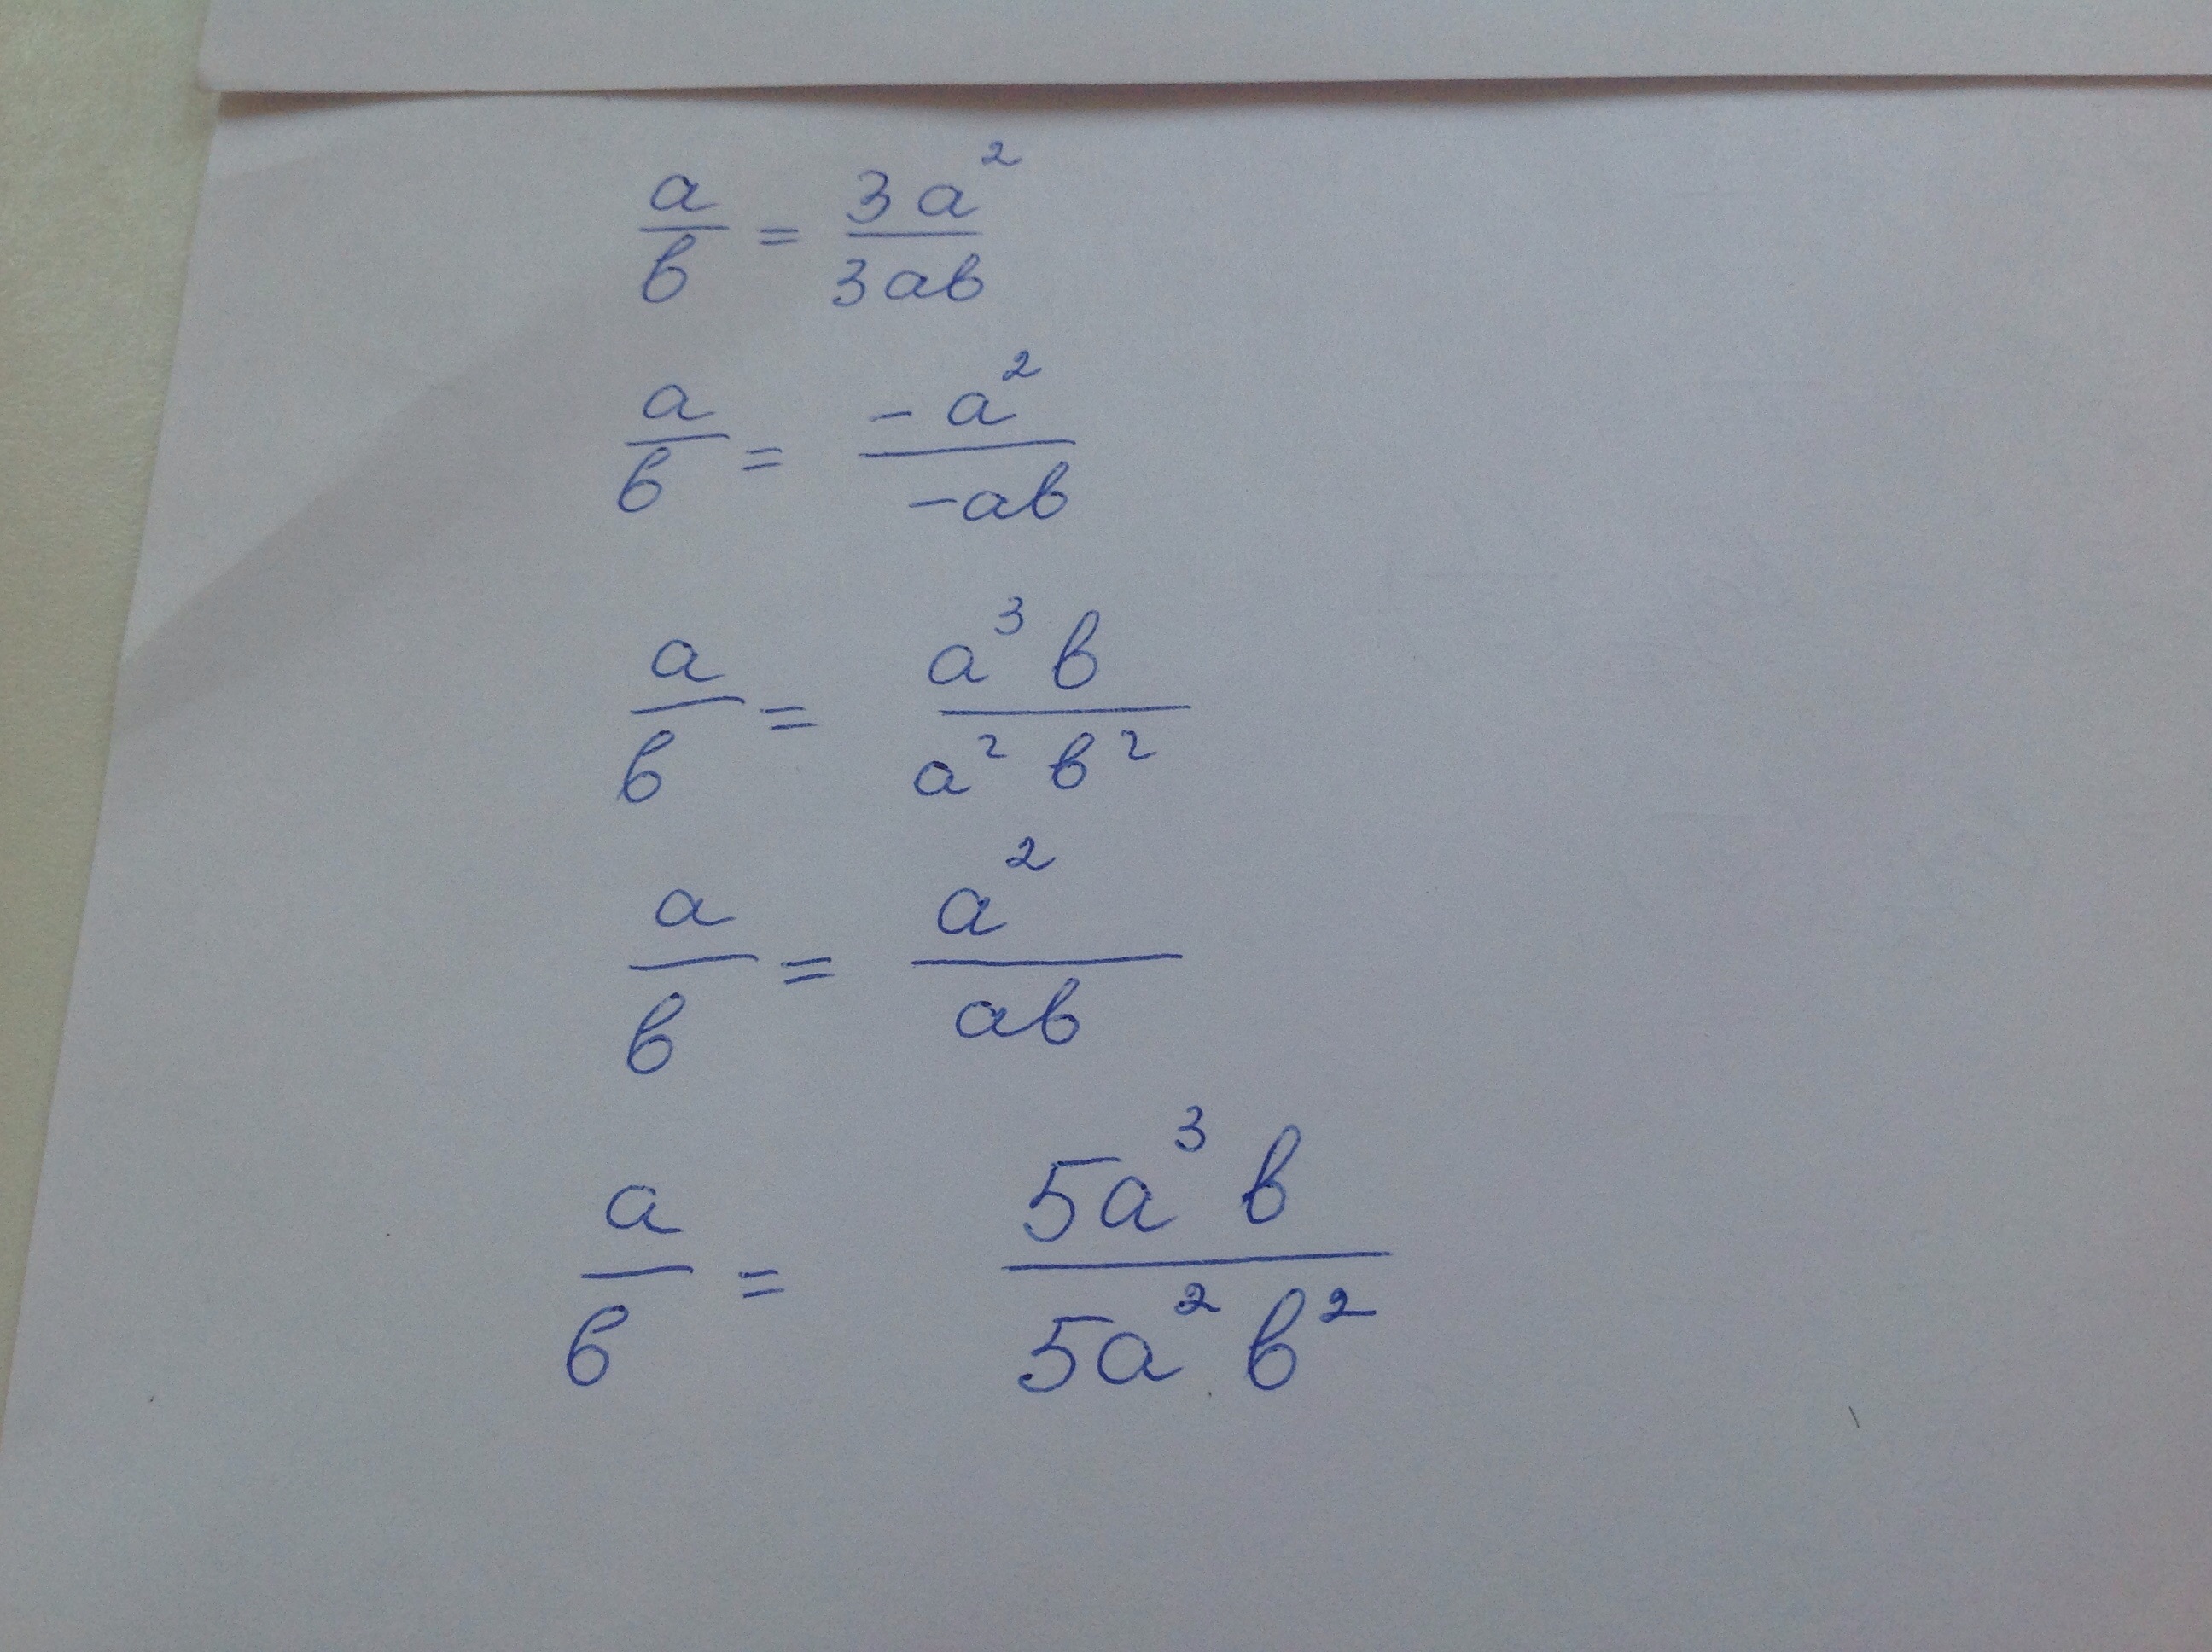 a/b = 3a²/3ab
a/b = -a²/-ab
a/b = a³b/a²b²
a/b = a²/ab
a/b = 5a³b/5a²b²